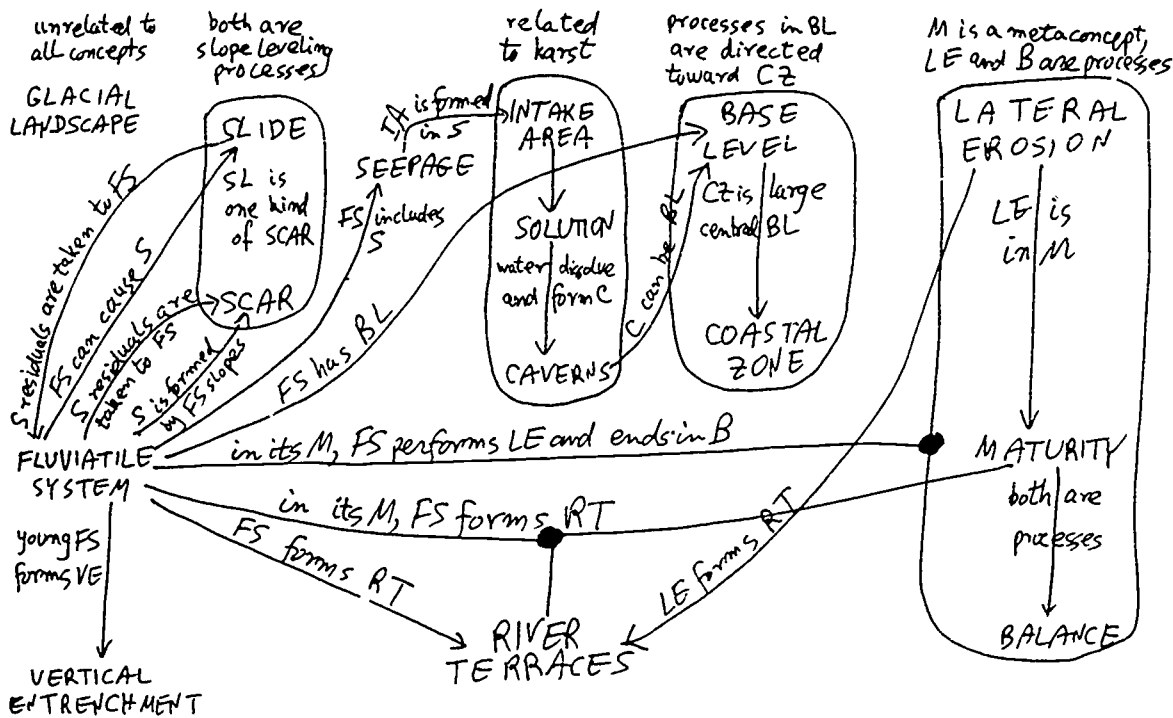 unrelated to
all concepts
GLACIAL
LANDSCAPE
both are
slope leveling
processes
SLIDE
SL is
one kind
of SCAR
SCAR
related
to karst
INTAKE
AREA
SOLUTION
water dissolve
and form C
CAVERNS
processes in BL
are directed
toward CZ
BASE
LEVEL
CZ is large
central BL
COASTAL
ZONE
M is a metaconcept,
LE and B are processes
LATERAL
EROSION
LE is
in M
MATURITY
both are
processes
BALANCE
IA is formed
in S
SEEPAGE
FS includes
S
S residuals are taken to FS
FS can cause S
S residuals are
taken to FS
S is formed
by FS slopes
FS has BL
C can be BL
FLUVIATILE
SYSTEM
in its M, FS performs LE and ends in B
in its M, FS forms RT
FS forms RT
LE forms RT
young FS
forms VE
RIVER
TERRACES
VERTICAL
ENTRENCHMENT